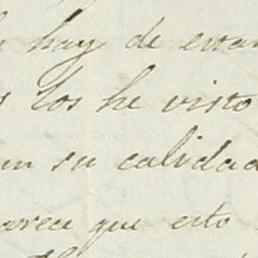 hay de
los he visto
su calidad
parece que esto